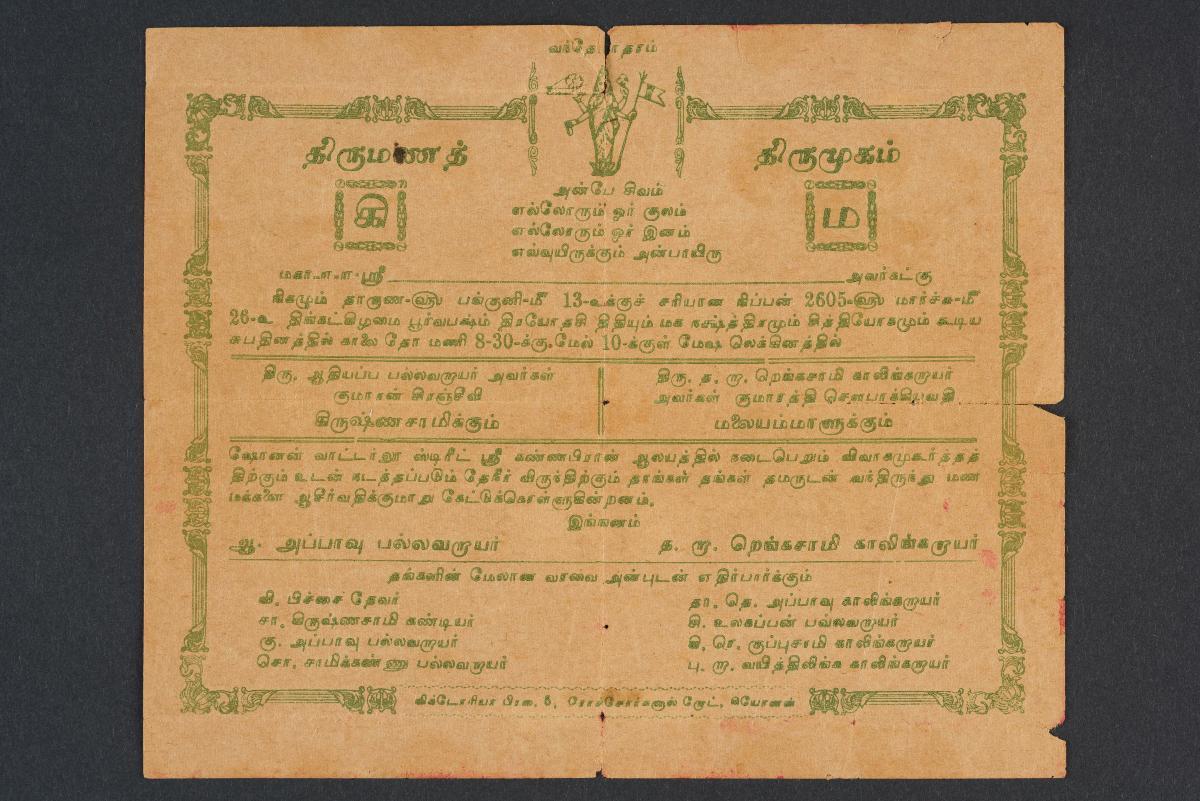 வந்தே மாதரம்
திருமணத் திருமுகம்
கி ம
அன்பே சிவம்
எல்லோரும் ஓர் குலம்
எல்லோரும் ஓர் இனம்
எவ்வுயிருக்கும் அன்பாயிரு
மகா-௱-௱-ஸ்ரீ அவர்கட்கு
நிகழும் தாரண-௵ பங்குனி-௴ 13-உக்குச் சரியான நிப்பன் 2605-௵ மார்ச்சு-௴
26-உ திங்கட்கிழமை பூர்வபக்ஷம் திரயோதசி திதியும் மக நக்ஷத்திரமும் சித்தியோகமும் கூடிய
சுபதினத்தில் காலை தோ மணி 8-30-க்கு.மேல் 10-க்குள் மேஷ லெக்கினத்தில்
திரு. ஆதியப்ப பல்லவறாயர் அவர்கள்
குமாரன் சிரஞ்சீவி
கிருஷ்ணசாமிக்கும்
திரு. த. றா. றெங்கசாமி காலிங்கறாயர்
அவர்கள் குமாரத்தி சௌபாக்கியவதி
மலையம்மாளுக்கும்
ஷோனன் வாட்டர்லூ ஸ்டிரீட் ஸ்ரீ கண்ணபிரான் ஆலயத்தில் நடைபெறும் விவாகமுகூர்த்தத்
திற்கும் உடன் நடத்தப்படும் தேநீர் விருந்திற்கும் தாங்கள் தங்கள் தமருடன் வந்திருந்து மண
மக்களை ஆசீர்வதிக்குமாறு கேட்டுக்கொள்ளுகின்றனம்.
இங்ஙனம்
ஆ. அப்பாவு பல்லவறாயர் த. றா. றெங்கசாமி காலிங்கறாயர்
தங்களின் மேலான வரவை அன்புடன் எதிர்பார்க்கும்
வி. பிச்சை தேவர்
சா. கிருஷ்ணசாமி கண்டியர்
கு. அப்பாவு பல்லவறாயர்
சொ. சாமிக்கண்ணு பல்லவறாயர்
தா. தெ. அப்பாவு காலிங்கறாயர்
சி. உலகப்பன் பல்லவறாயர்
கி. ரெ. குப்புசாமி காலிங்கறாயர்
பு. றா. வயித்திலிங்க காலிங்கறாயர்
விக்டோரியா பிரஸ், 6, ரோட், ஷியோனன்